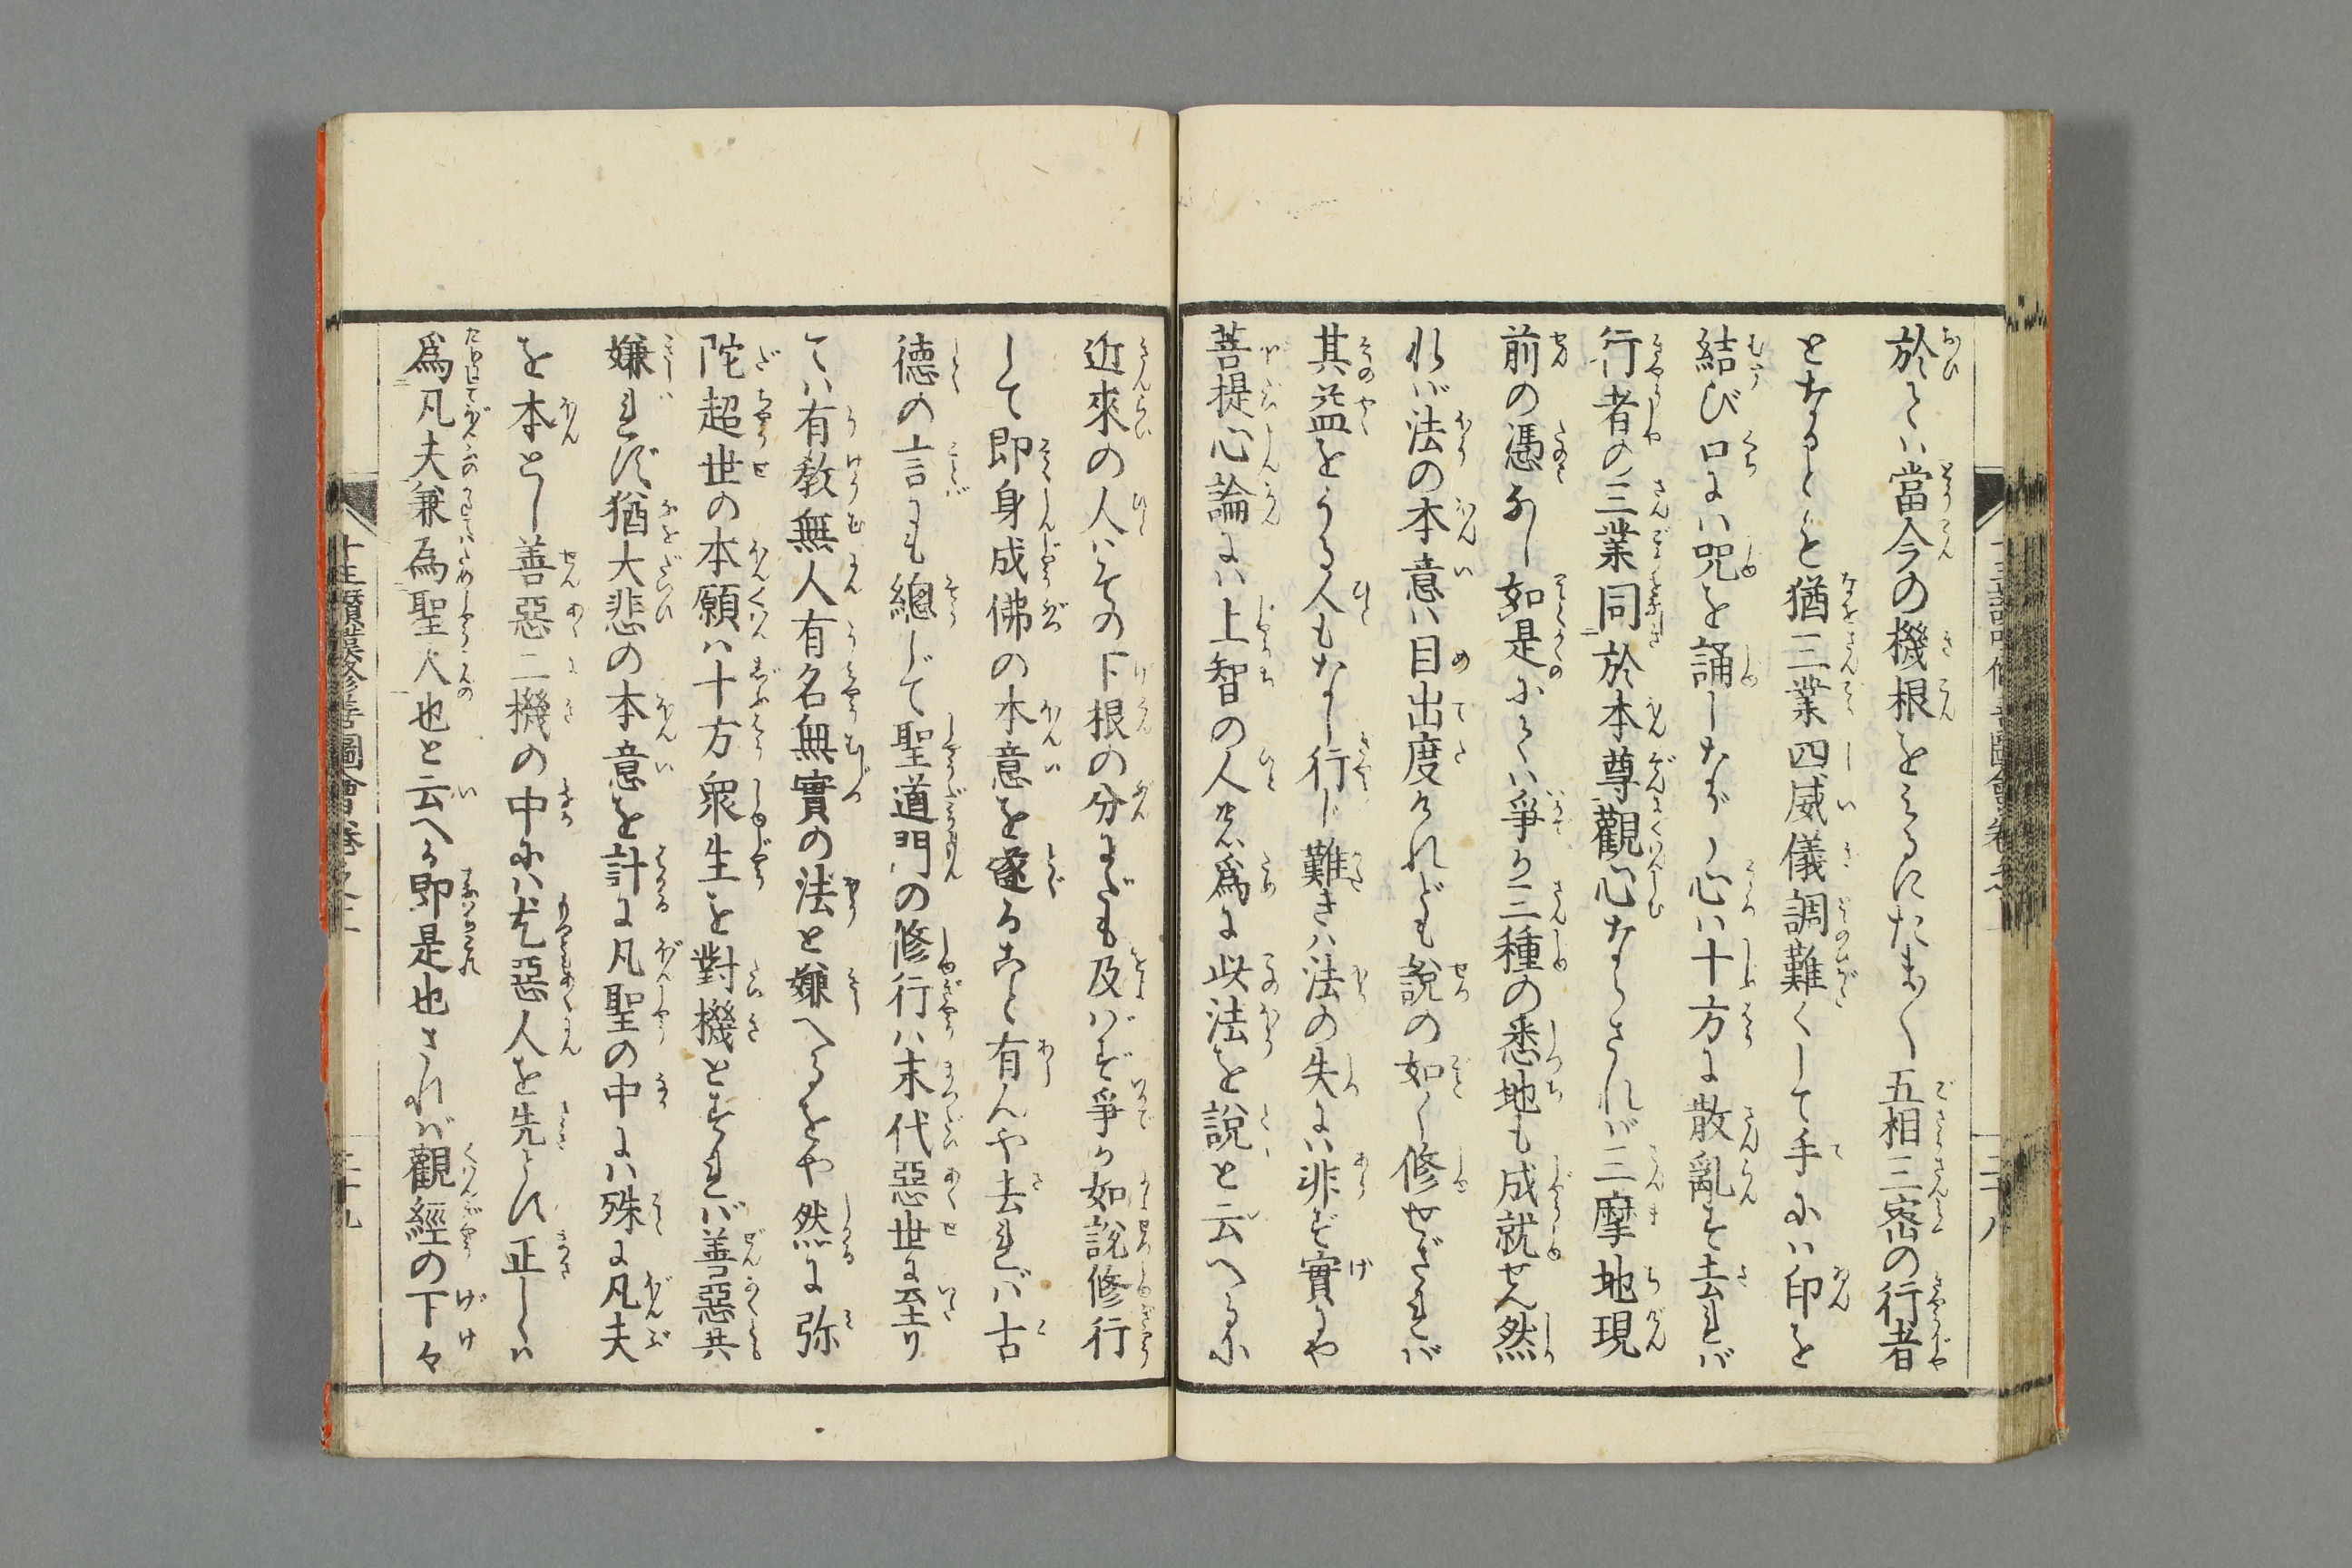 於ては當今の機根をみるにたま〱五相三密の行者
となるとも猶三業四威儀調難くして手には印を
結び口には咒を誦しながら心は十方に散亂す去れば
行者の三業同於本尊觀心ならざれば三摩地現
前の憑なし如是にては爭か三種の悉地も成就せん然
れば法の本意は目出度けれども說の如く修せざれば
其益をうる人もなし行じ難きは法の失には非ず實にや
菩提心論には上智の人の爲に此法を說と云へるに
近來の人はその下根の分までも及ばず爭か如說修行
して即身成佛の本意を遂ること有んや去れば古
德の言にも總じて聖道門の修行は末代惡世に至り
ては有敎無人有名無實の法と嫌へるをや然に弥
陀超世の本願は十方衆生を對機とすれば善惡共
嫌れず猶大悲の本意を計に凡聖の中には殊に凡夫
を本とし善惡二機の中には尤惡人を先とす正しくは
爲凡夫兼為聖人也と云へる即是也されば觀經の下々
十王讃歎修善圖會卷之上
二十九